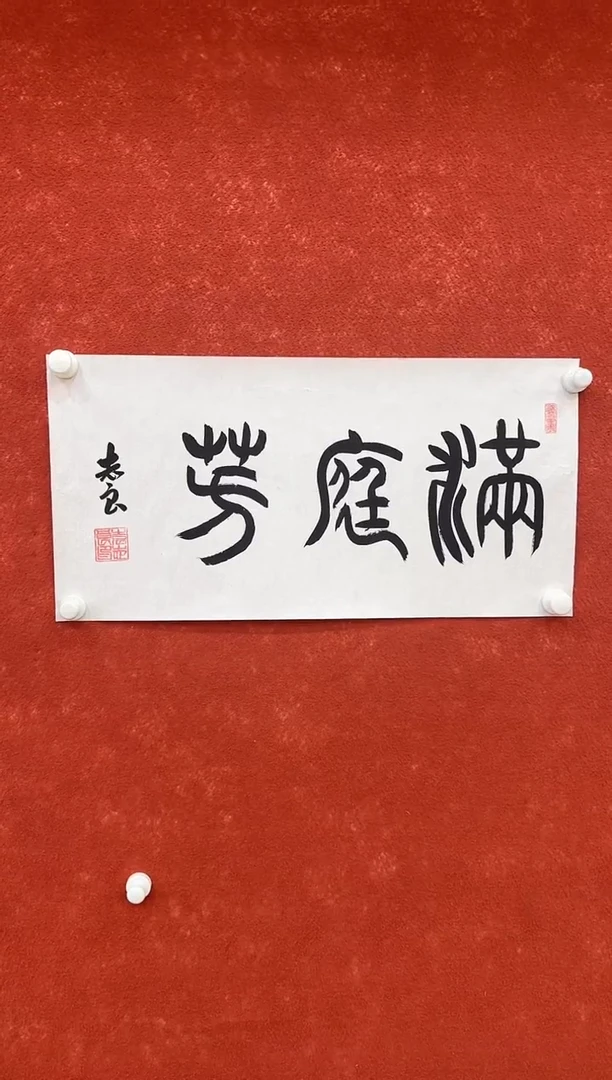 滿庭芳
志良